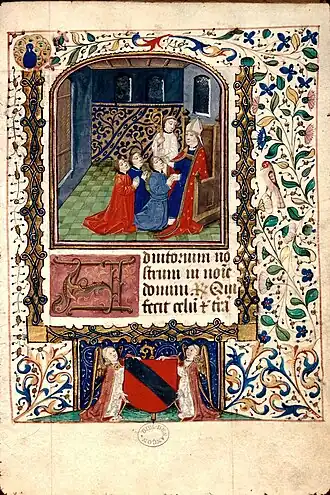 Adiutorium no
strum in noı̄e
domini. Qui
fecit celū ⁊ trā